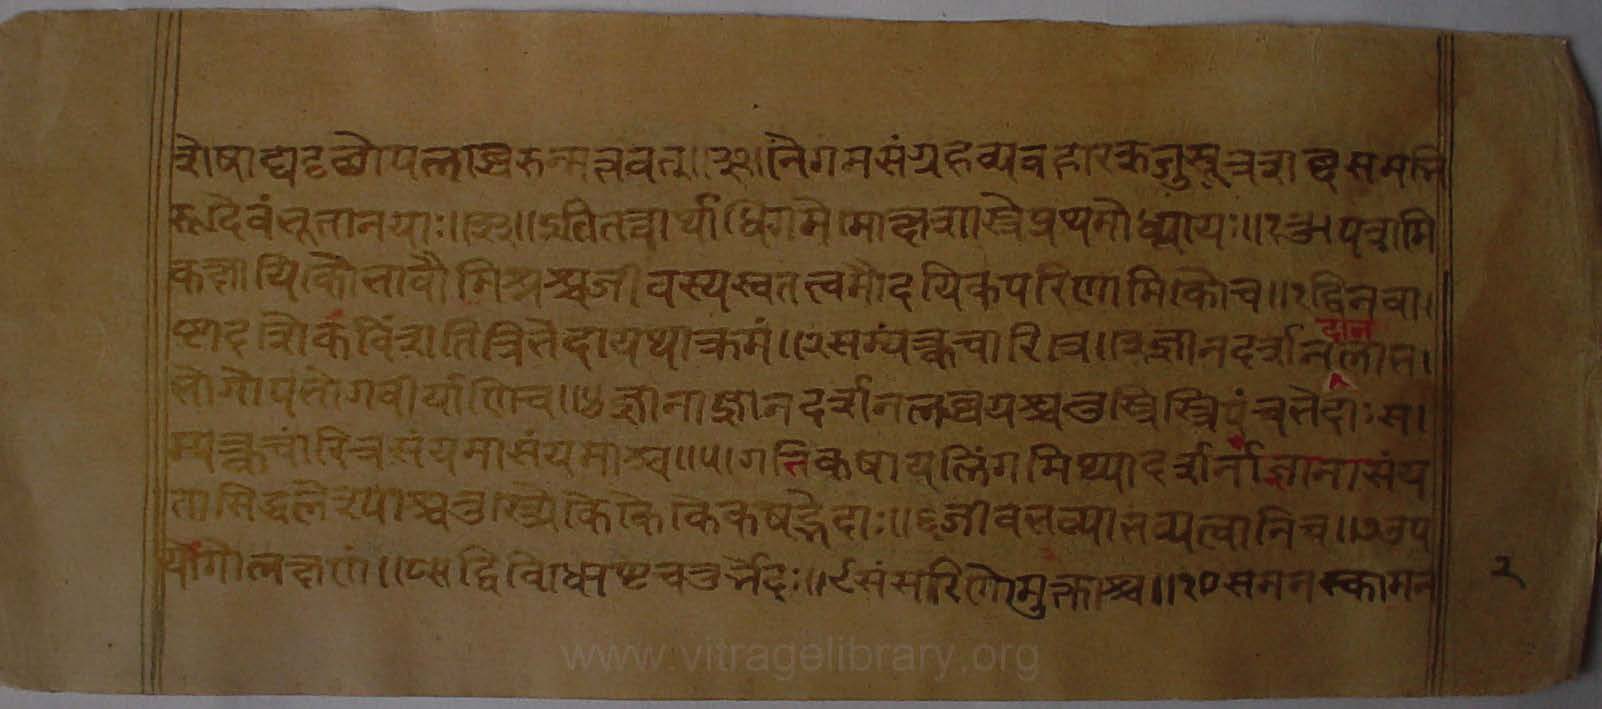 शेषाद्यदृछोपलब्धेरुन्मत्तवत्॥३२॥नैगमसंग्रहव्यवहारऋजुसूत्रशब्दसमभि
रूढैवंभूतानयाः॥३३॥इतितत्वार्थाधिगमेमोक्षशास्त्रेप्रथमोध्यायः॥१औपशमि
कक्षायिकौभावौमिश्रश्चजीवस्यस्वतत्त्वमौदयिकपारिणामिकौच॥१द्विनवा।
ष्टादशैकविंशतित्रिभेदायथाक्रमं॥२सम्यक्त्वचारित्रे॥३ज्ञानदर्शनदानलाभ।
भोगोपभोगवीर्याणिच॥४ज्ञानाज्ञानदर्शनलब्धयश्चतुस्त्रित्रिपंचभेदाःस।
म्यक्त्वचारित्रसंयमासंयमाश्च॥५।गतिकषायलिंगमिथ्यादर्शनाज्ञानासंय
तासिद्धलेश्याश्चतुस्त्र्येकैकैकैकषड्भेदाः॥६जीवभव्याभव्यत्वानिच॥७उप
योगोलक्षणं॥८सद्विविधोष्टचतुर्भेदः॥९संसारिणोमुक्ताश्च॥१०समनस्कामन
२
www.vitragelibrary.org